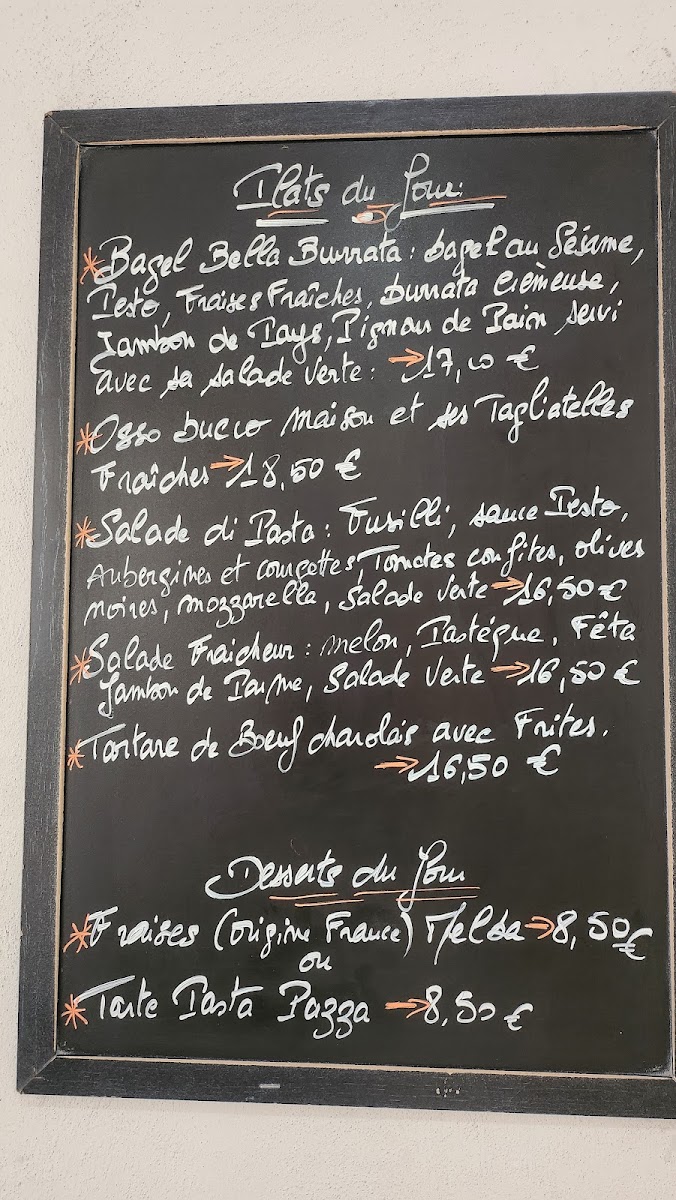 Plats du Jour:
* Bagel Bella Burrata : bagel au Sésame,
Pesto, Fraises Fraîches, burrata crèmeuse,
Jambon de Pays, Pignon de Pain servi
avec sa salade verte : → 17,00 €
* Osso bucco maison et ses Tagliatelles
Fraîches → 18,50 €
* Salade di Pasta : Fusilli, sauce Pesto,
Aubergines et courgettes, Tomates confites, olives
noires, mozzarella, Salade verte → 16,50 €
* Salade Fraicheur : melon, Pastéque, Fêta
Jambon de Parme, Salade Verte → 16,50 €
* Tartare de Boeuf charolais avec Frites.
→ 16,50 €
Desserts du Jour
* Fraises (origine France) Melba → 8,50 €
ou
* Tarte Pasta Pazza → 8,50 €